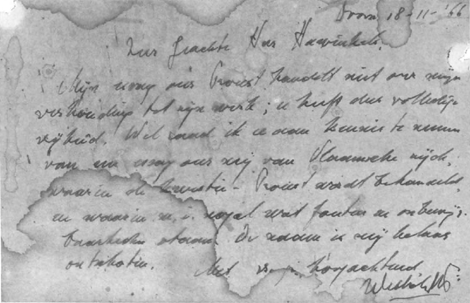 Doorn 18-11-'66
Zeer Geachte Heer
Mijn essay over Proust handelt niet over mijn
verhouding tot zijn werk; u heeft dus volledig
vrijheid. Wel raad ik u aan kennis te nemen
van een essay over mij van Vlaamsche zijde,
waarin de kwestie - Proust wordt behandeld
en waarin m.i. nogal wat fouten en onbewijs-
baarheden staan. De naam is mij helaas
ontschoten.
Met hoogachtend